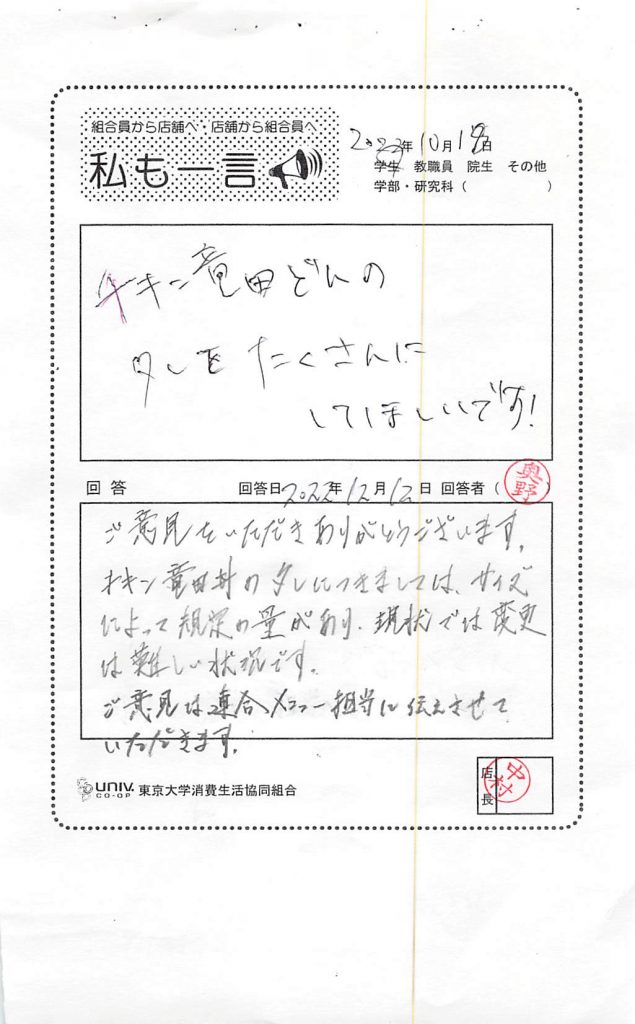 組合員から店舗へ・店舗から組合員へ
私も一言
2022年10月18日
学生 教職員 院生 その他
学部・研究科（ ）
チキン竜田どんの
タレを たくさんに
してほしいです!
回答 回答日2022年12月12日 回答者（奥野）
ご意見をいただきありがとうございます。
チキン竜田丼のタレにつきましては、サイズ
によって規定の量があり、現状では変更
は難しい状況です。
ご意見は連合メニュー担当に伝えさせて
いただきます。
UNIV. CO-OP 東京大学消費生活協同組合
店長 中村